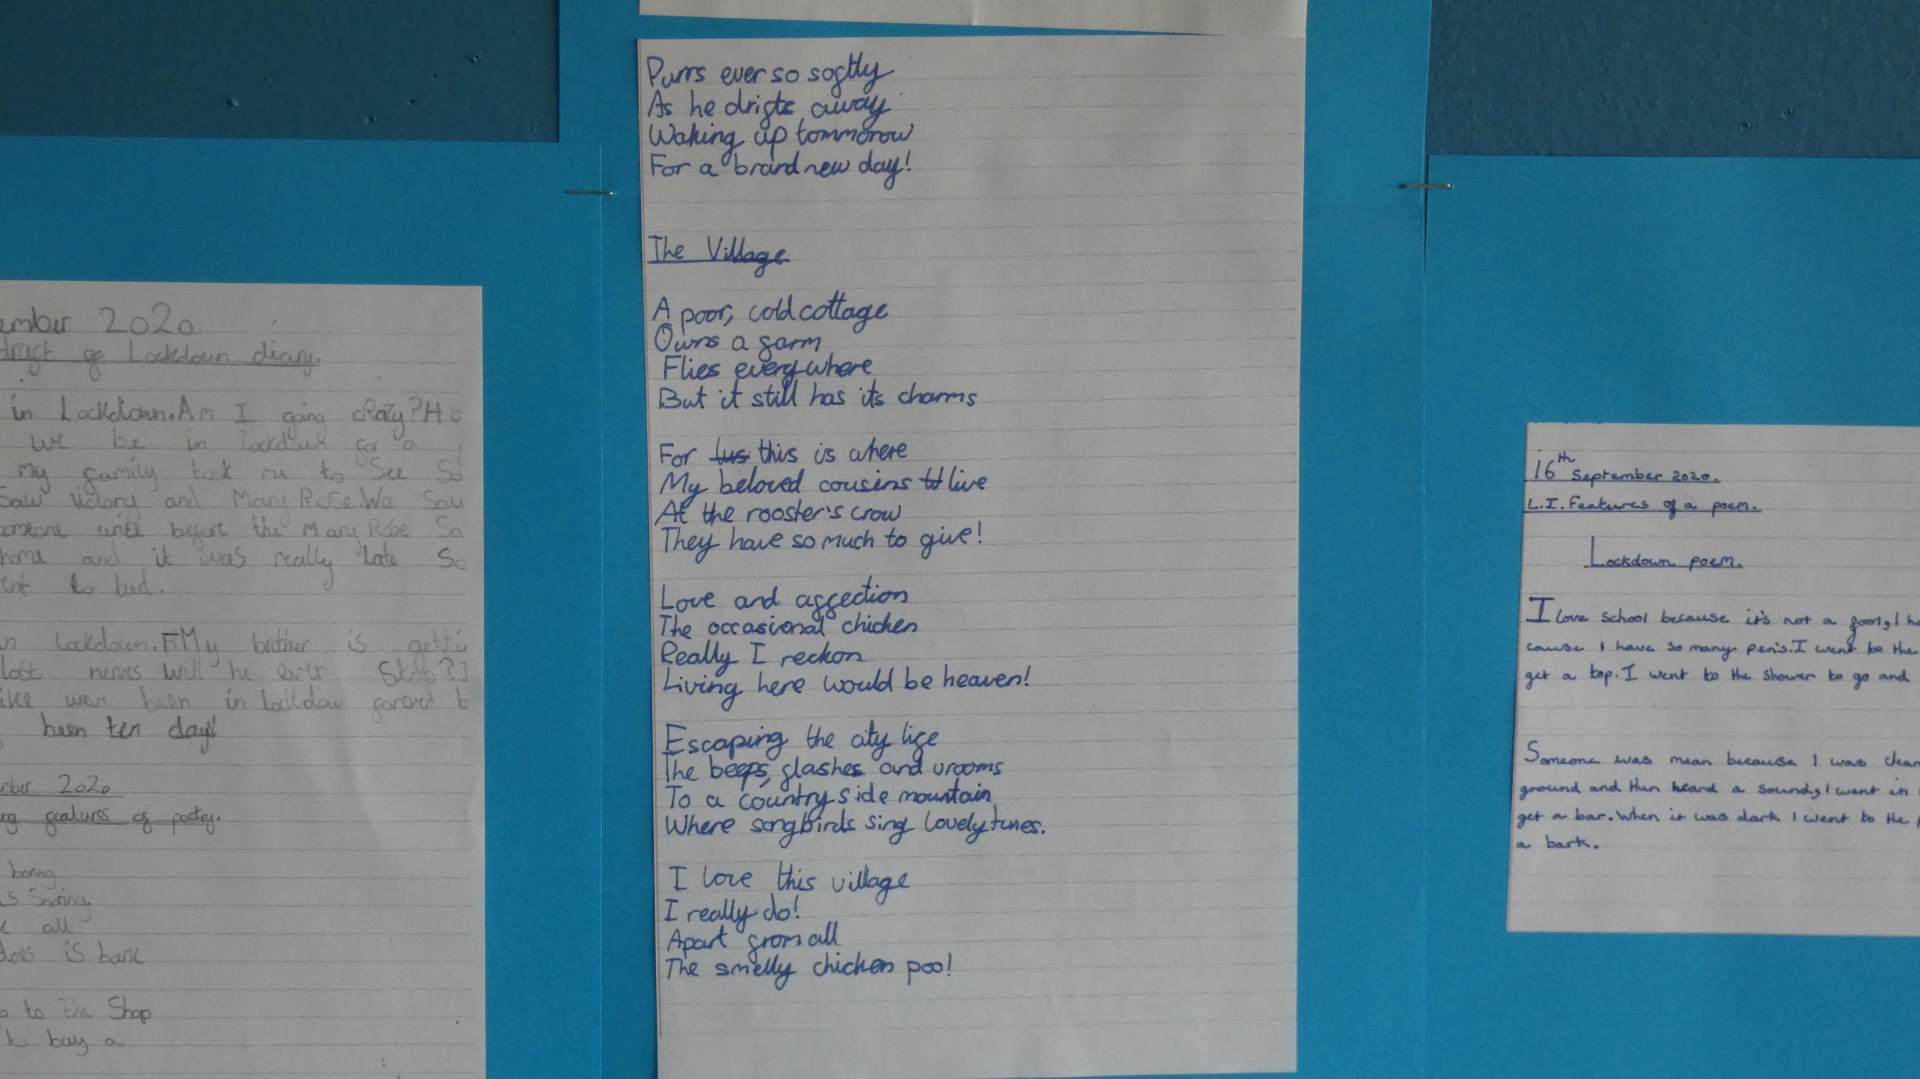 Purrs ever so softly
As he drifts away
Waking up tommorow
For a brand new day!
The Village
A poor, cold cottage
Owns a farm
Flies everywhere
But it still has its charms
For this is where
My beloved cousins live
At the rooster's crow
They have so much to give!
Love and affection
The occasional chicken
Really I reckon
Living here would be heaven!
Escaping the city life
The beeps, flashes and vrooms
To a countryside mountain
Where songbirds sing lovely tunes.
I love this village
I really do!
Apart from all
The smelly chicken poo!
ember 2020
tract of Lockdown diary.
in Lockdown. Am I going cRazy? H
we be in lockdown for a
my family took me to See So
Saw Victory and Mary Rose. We Saw
until before the Mary Rose So
and it was really late So
to bed.
lockdown. My brother is getti
nerves will he ever Stop? I
ike weve been in lockdow b
been ten days!
mber 2020
features of poetry.
boring
is
all
does is bark
to the Shop
to buy a
16th September 2020.
L.I. Features of a poem.
Lockdown poem.
I love school because it's not a fool, I ha
cause I have so many pens. I went to the
get a top. I went to the shower to go and
Someone was mean because I was
ground and then heard a sound, I went in
get a bar. When it was dark I went to the
a bark.